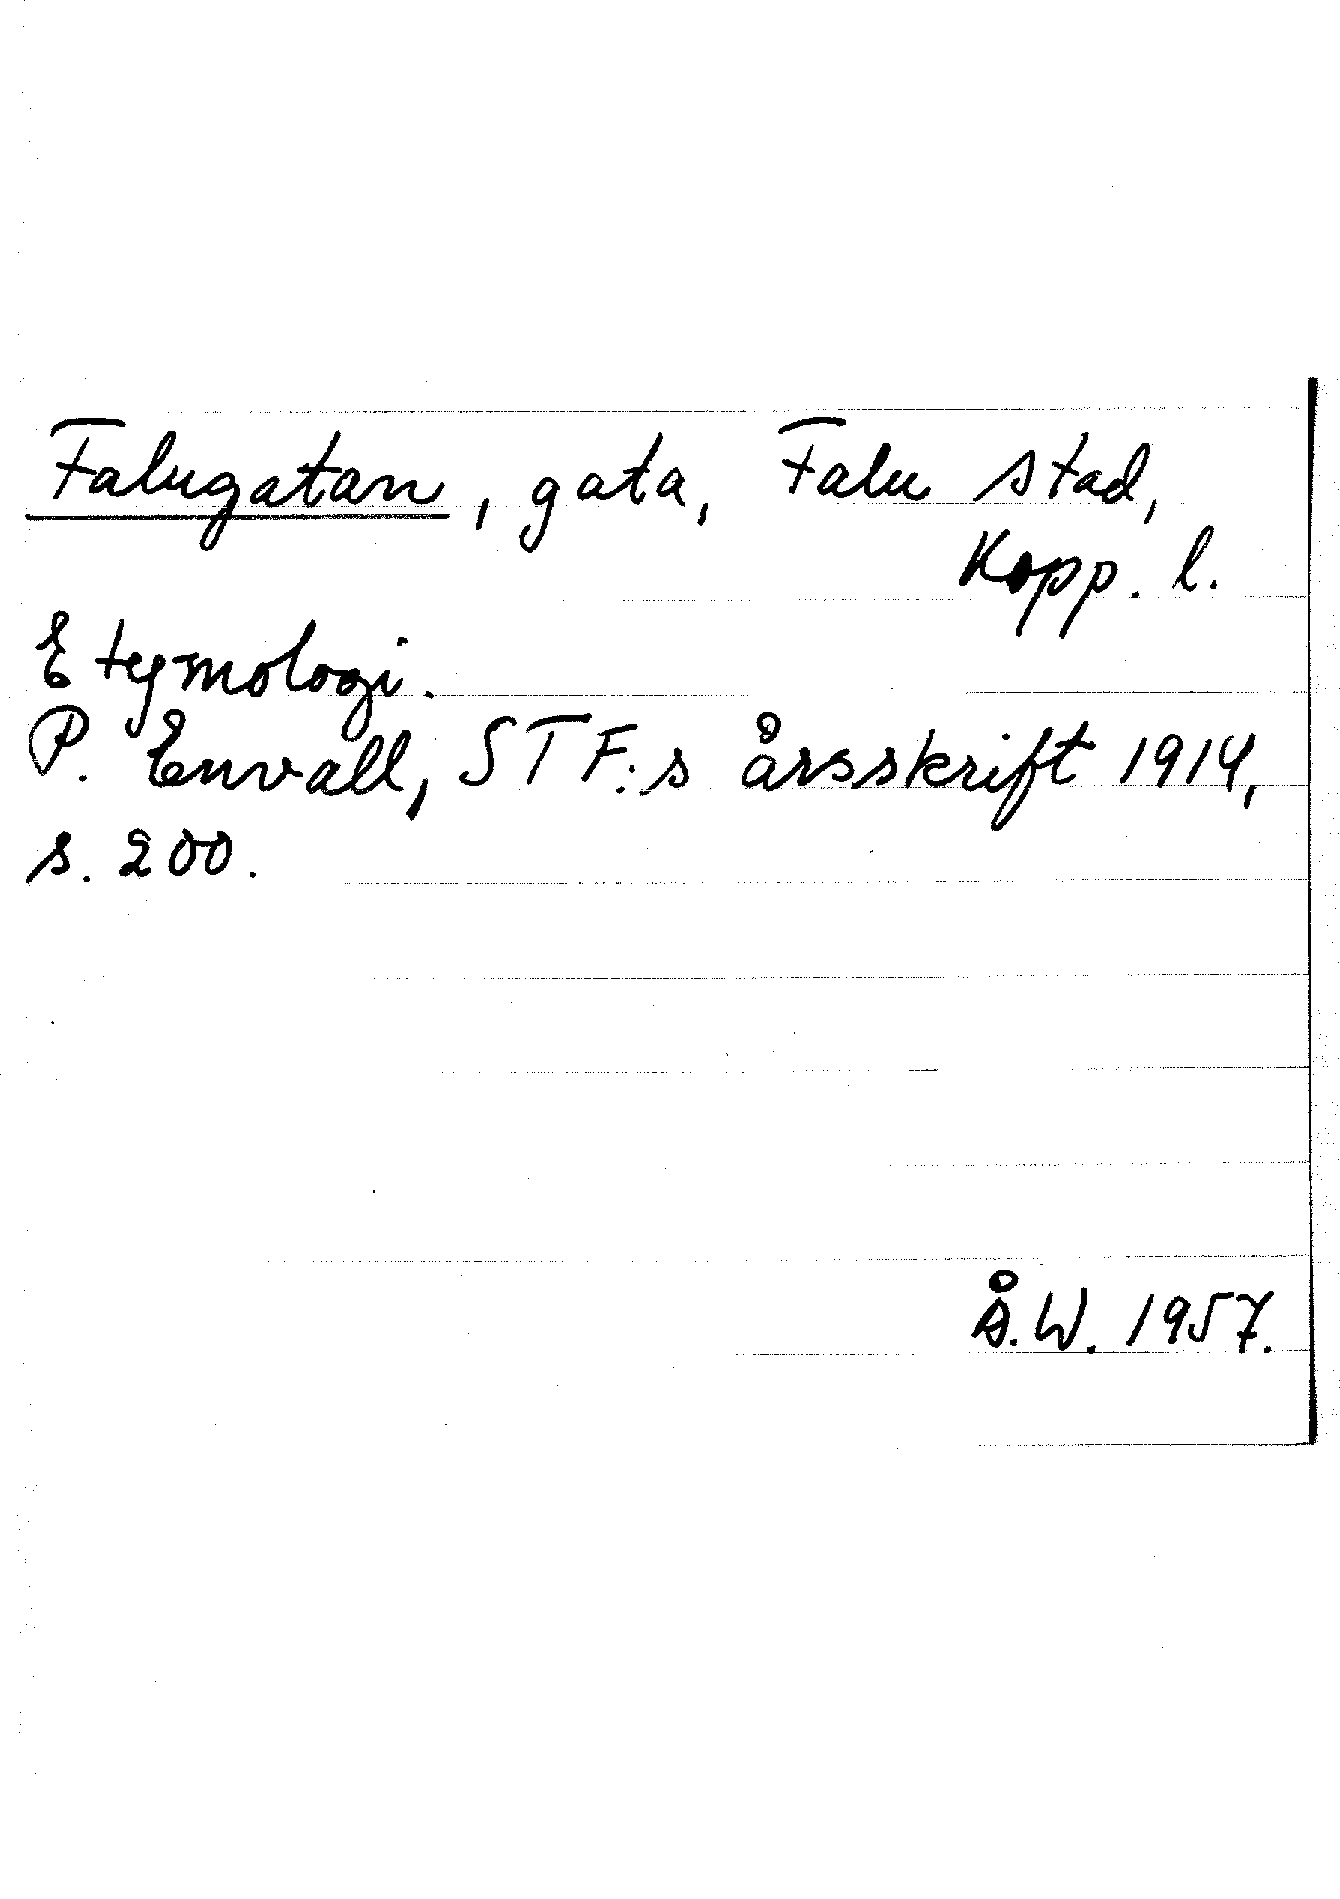 Falugatan, gata, Falu stad,
Kopp. l.
Etymologi.
P. Envall, STF:s årsskrift 1914,
s. 200.
Å.W. 1957.